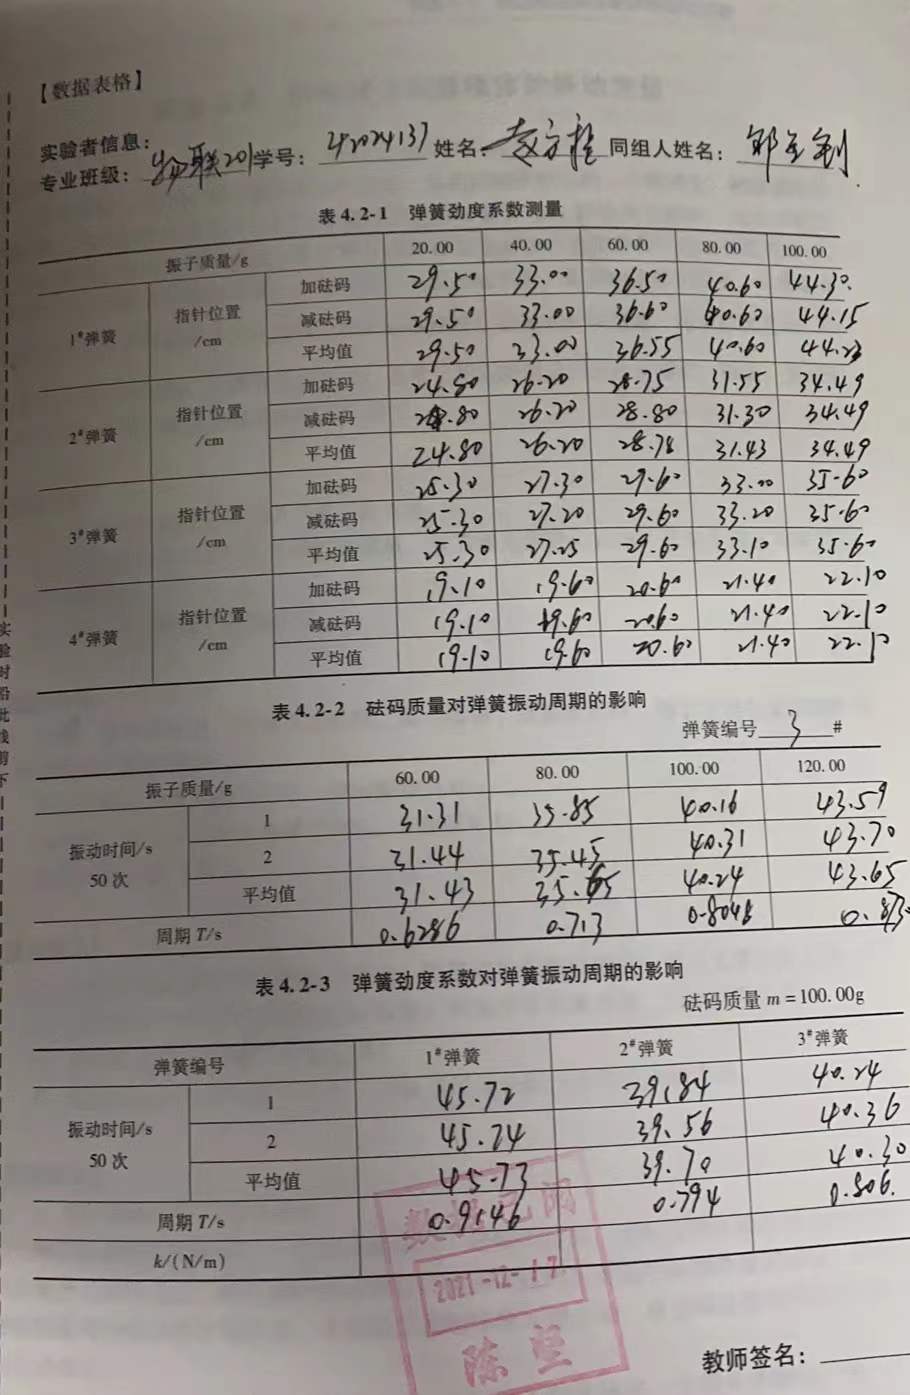 【数据表格】
实验者信息:
专业班级: 物联201 学号: 42024137 姓名: 同组人姓名:
表 4.2-1 弹簧劲度系数测量
振子质量/g 20.00 40.00 60.00 80.00 100.00
1#弹簧 指针位置/cm 加砝码 29.50 33.00 36.50 40.60 44.30.
减砝码 29.50 33.00 36.60 40.60 44.15
平均值 29.50 33.00 36.55 40.60 44.23
2#弹簧 指针位置/cm 加砝码 24.80 26.20 28.75 31.55 34.49
减砝码 24.80 26.20 28.80 31.30 34.49
平均值 24.80 26.20 28.78 31.43 34.49
3#弹簧 指针位置/cm 加砝码 25.30 27.30 29.60 33.00 35.60
减砝码 25.30 27.20 29.60 33.20 35.60
平均值 25.30 27.25 29.60 33.10 35.60
4#弹簧 指针位置/cm 加砝码 19.10 19.60 20.60 21.40 22.10
减砝码 19.10 19.60 20.60 21.40 22.10
平均值 19.10 19.60 20.60 21.40 22.10
表 4.2-2 砝码质量对弹簧振动周期的影响
弹簧编号 3 #
振子质量/g 60.00 80.00 100.00 120.00
振动时间/s 50 次 1 31.31 35.85 40.16 43.59
2 31.44 35.45 40.31 43.70
平均值 31.43 35.65 40.24 43.65
周期 T/s 0.6286 0.713 0.8048 0.873
表 4.2-3 弹簧劲度系数对弹簧振动周期的影响
砝码质量 m = 100.00g
弹簧编号 1#弹簧 2#弹簧 3#弹簧
振动时间/s 50 次 1 45.72 39.84 40.24
2 45.74 39.56 40.36
平均值 45.73 39.70 40.30
周期 T/s 0.9146 0.794 0.806.
k/(N/m)
2021-12-17
陈 坚
教师签名:
实验时沿此线剪下